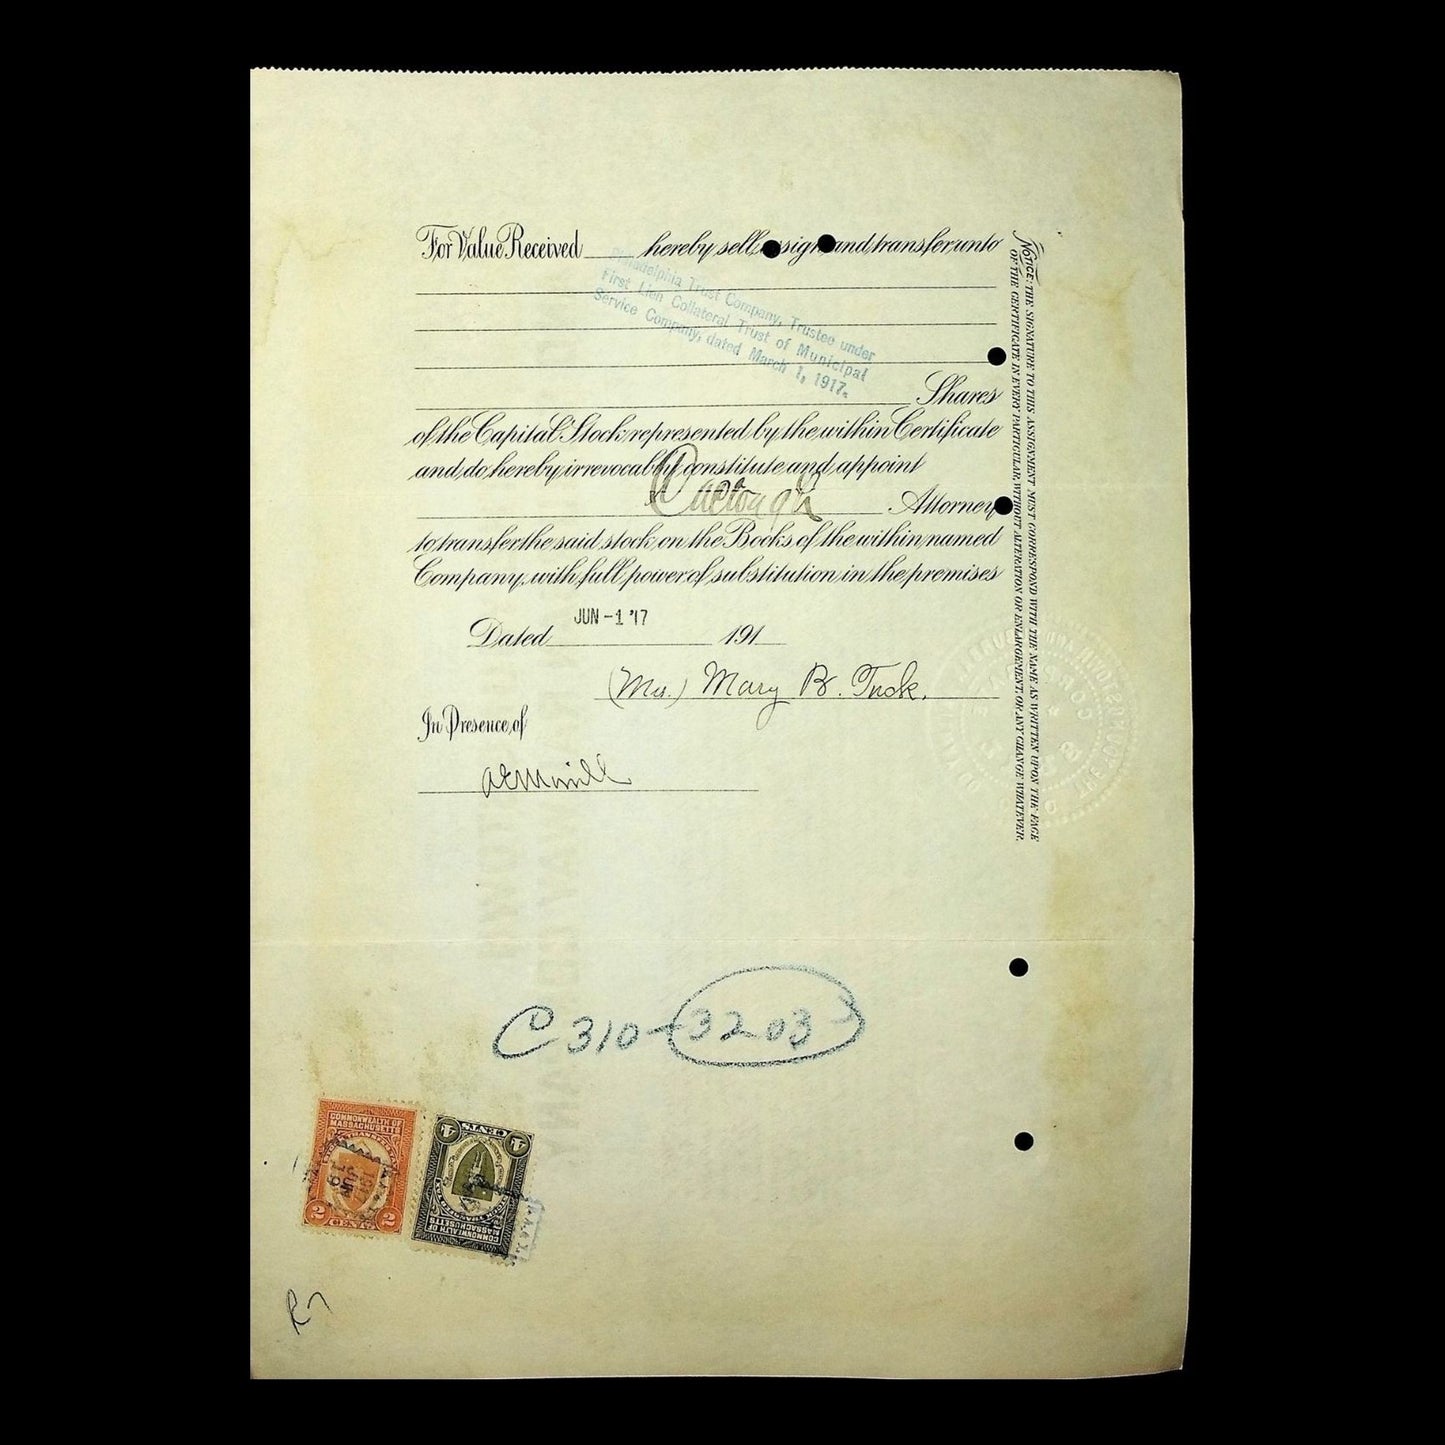 For Value Received ____ hereby sell, assign and transfer unto
Philadelphia Trust Company, Trustee under
First Lien Collateral Trust of Municipal
Service Company, dated March 1, 1917.
Shares
of the Capital Stock represented by the within Certificate
and do hereby irrevocably constitute and appoint
Attorney
to transfer the said stock on the Books of the within named
Company with full power of substitution in the premises
Dated JUN -1 '17 191
(Mrs.) Mary B. Tuck.
In Presence of
NOTICE: THE SIGNATURE TO THIS ASSIGNMENT MUST CORRESPOND WITH THE NAME AS WRITTEN UPON THE FACE
OF THE CERTIFICATE IN EVERY PARTICULAR, WITHOUT ALTERATION OR ENLARGEMENT, OR ANY CHANGE WHATEVER.
C 310-3203
COMMONWEALTH OF
MASSACHUSETTS
19
JUN
2 CENTS 2
4 CENTS 4
COMMONWEALTH OF
MASSACHUSETTS